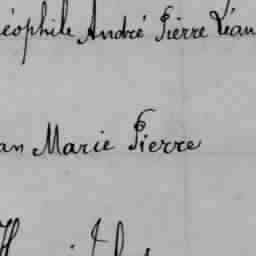 éophile André Pierre Léan
an Marie Pierre